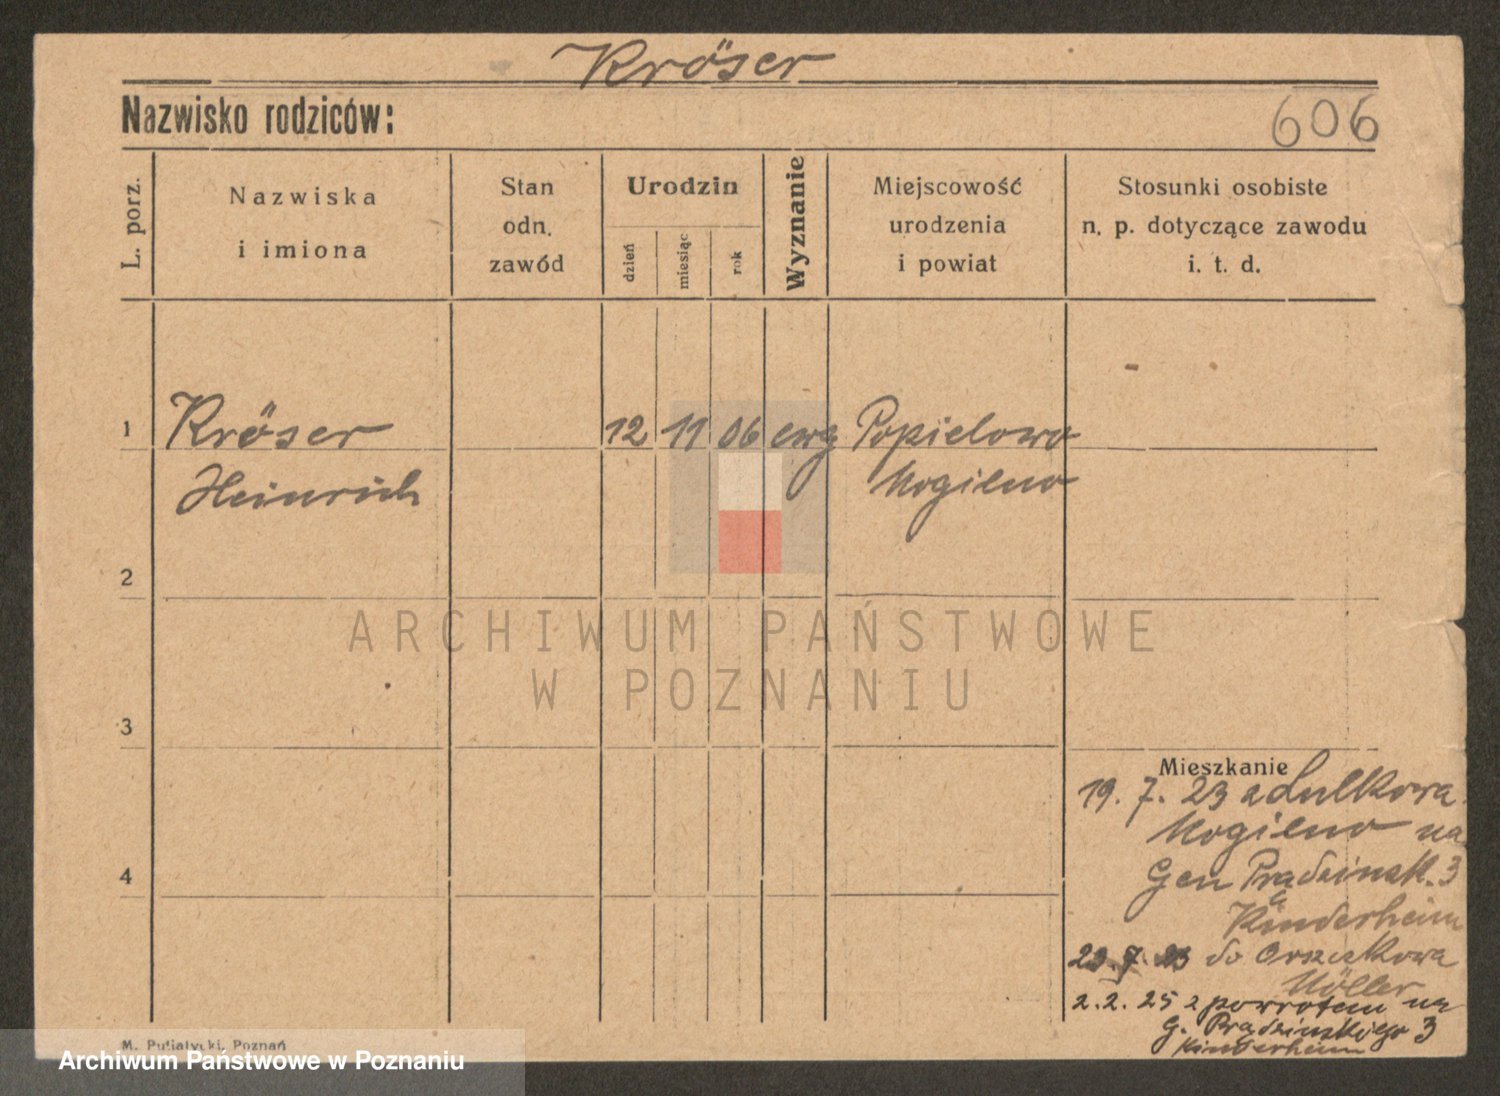 Kröser
Nazwisko rodziców:
606
L. porz.
Nazwiska
i imiona
Stan
odn.
zawód
Urodzin
dzień
miesiąc
rok
Wyznanie
Miejscowość
urodzenia
i powiat
Stosunki osobiste
n. p. dotyczące zawodu
i. t. d.
1
Kröser
12 11 06 ewg Popielowo
Heinrich
Mogilno
2
ARCHIWUM PAŃSTWOWE
W POZNANIU
3
Mieszkanie
19. 7. 23 z Lulkowa
Mogilno na
4
Gen Prądzinsk. 3
Kinderheim
23. 7. 23 do Orszkowa
Möller
2. 2. 25 z powrotem na
G. Prądzinskiego 3
Kinderheim
M. Putiatycki, Poznań
Archiwum Państwowe w Poznaniu